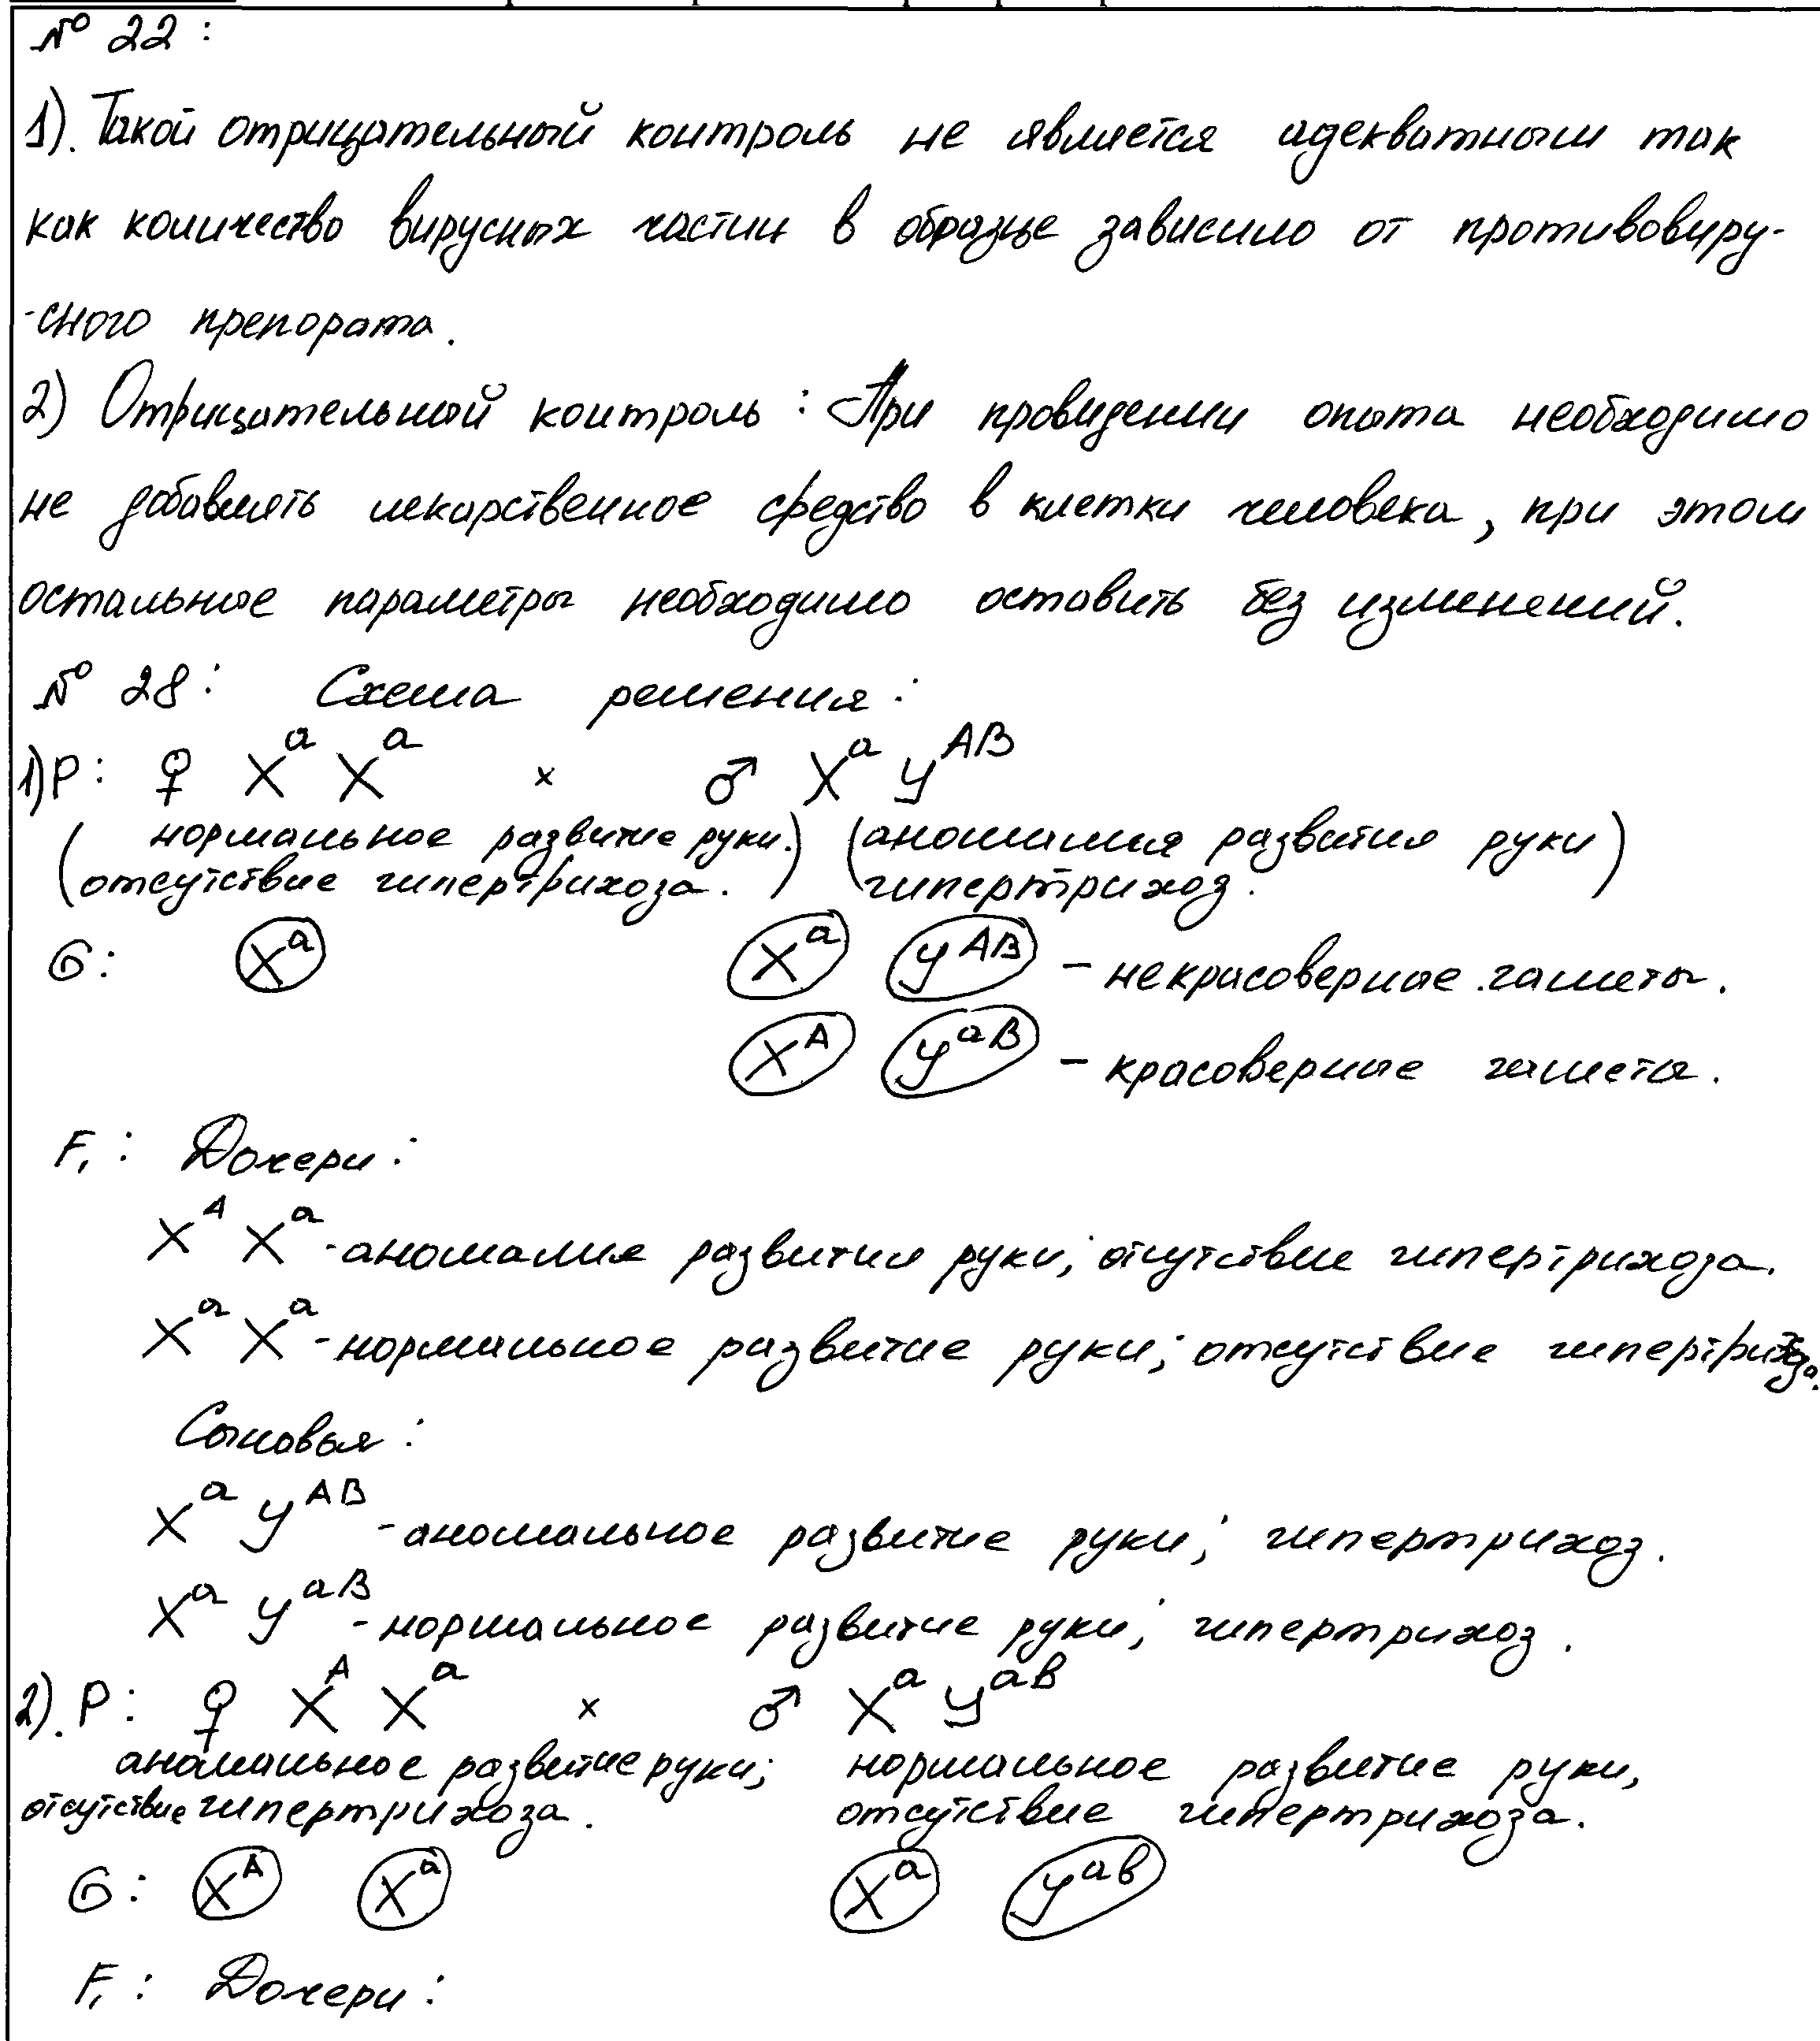 № 22 :
1). Такой отрицательный контроль не является адекватным так
как количество вирусных частиц в образце зависило от противовиру-
-сного препората.
2) Отрицательный контроль : При провидении опыта необходимо
не добавлять лекарственное средство в клетки человека, при этом
остальные параметры необходимо оставить без изменений.
№ 28 : Схема решения :
1) P : ♀ X^a X^a × ♂ X^a Y^AB
(нормальное развитие руки.) (аномалия развития руки)
(отсутствие гипертрихоза.) (гипертрихоз.)
G : X^a X^a Y^AB – некрасоверные гаметы.
X^A Y^aB – красоверные гаметы.
F₁ : Дочери :
X^A X^a - аномалия развития руки; отсутствие гипертрихоза.
X^a X^a - нормальное развитие руки; отсутствие гипертрихоза.
Сыновья :
X^a Y^AB - аномальное развитие руки; гипертрихоз.
X^a Y^aB - нормальное развитие руки; гипертрихоз.
2). P : ♀ X^A X^a × ♂ X^a Y^ab
аномальное развитие руки; нормальное развитие руки,
отсутствие гипертрихоза. отсутствие гипертрихоза.
G : X^A X^a X^a Y^ab
F₁ : Дочери :